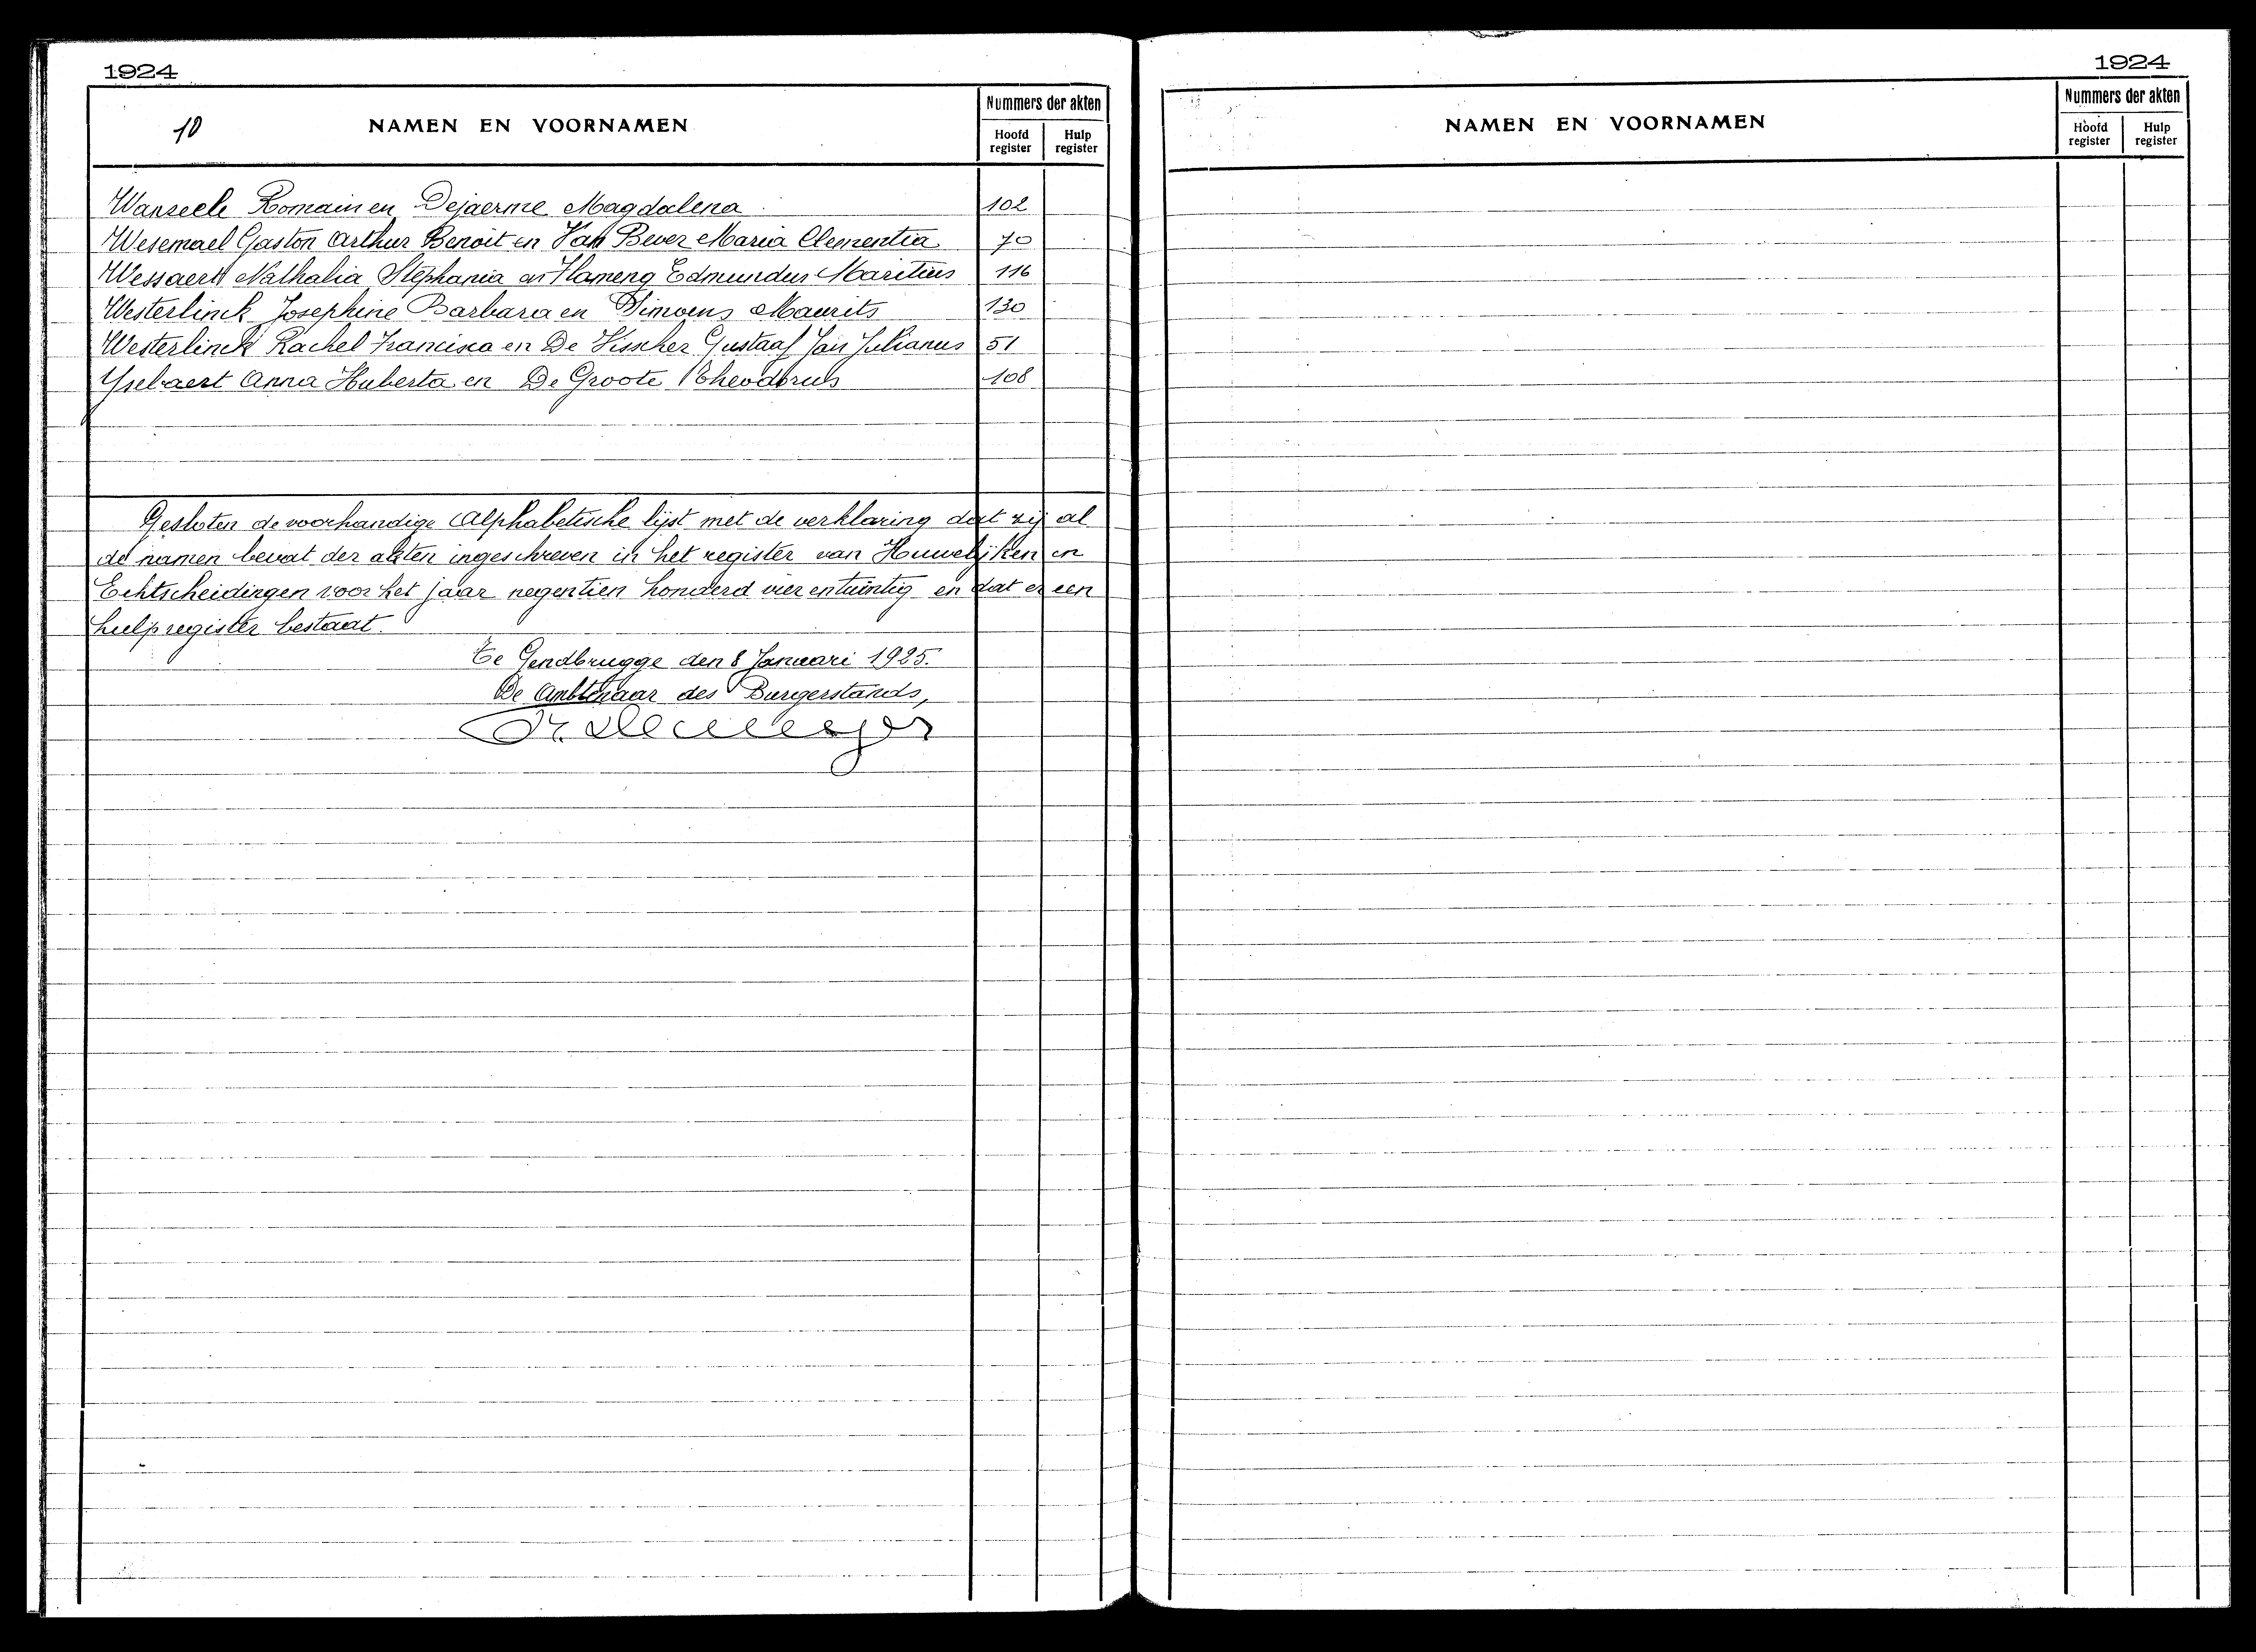 1924
10
NAMEN EN VOORNAMEN
Nummers der akten
Hoofd register
Hulp register
Wanseele Romain en Dejaerme Magdalena 102
Wesemael Gaston Arthur Benoit en Van Bever Maria Clementia 70
Wessaert Nathalia Stephania en Hameng Edmundus Maritius 116
Westerlinck Josephine Barbara en Simoens Maurits 130
Westerlinck Rachel Francisca en De Visscher Gustaaf Jan Julianus 51
Yselaert Anna Huberta en De Groote Theodorus 108
Gesloten de voorhandige Alphabetische lijst met de verklaring dat zij al
de namen bevat der akten ingeschreven in het register van Huwelijken en
Echtscheidingen voor het jaar negentien honderd vier entwintig en dat er een
hulpregister bestaat.
Te Gendbrugge den 8 Januari 1925.
De Ambtenaar des Burgerstands,
1924
NAMEN EN VOORNAMEN
Nummers der akten
Hoofd register
Hulp register